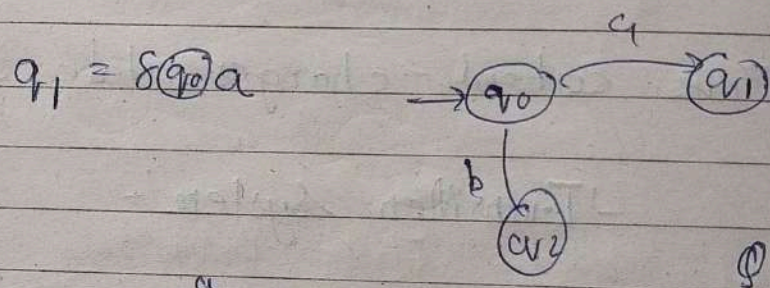 q1 = δ(q0)a
a
q0
q1
b
q2